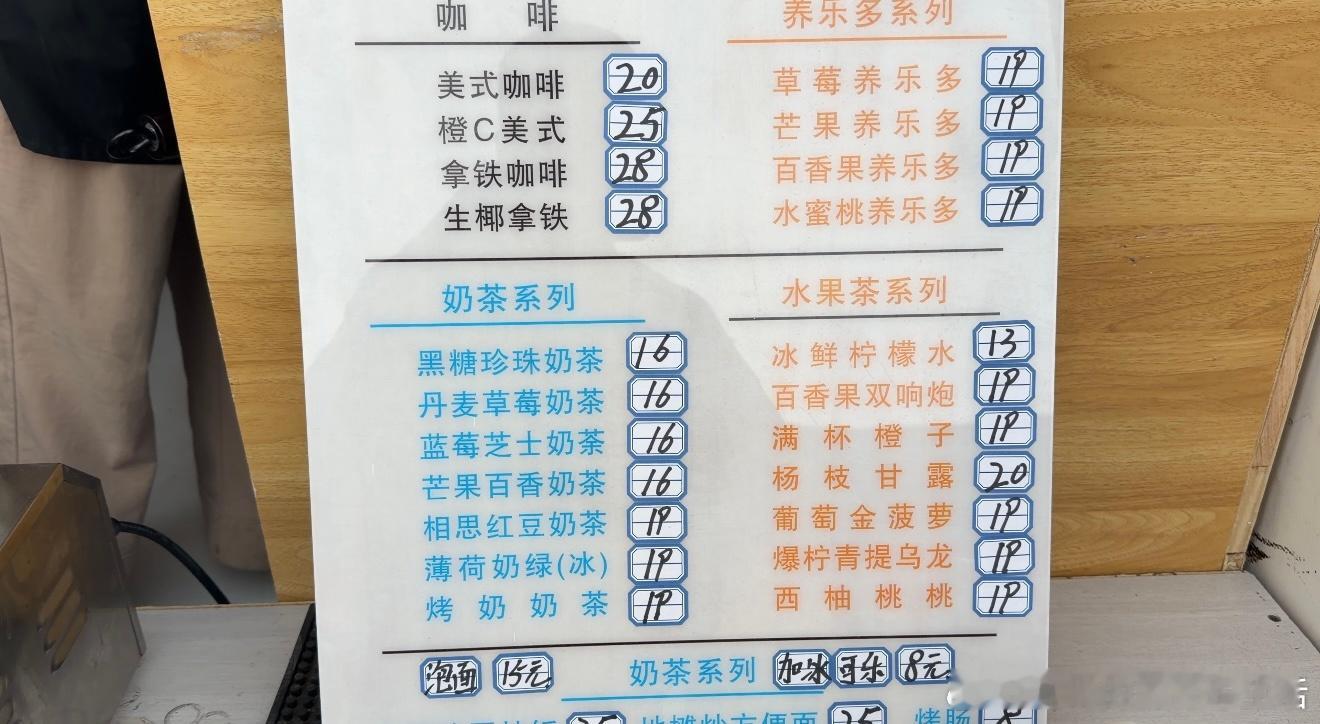 咖 啡
美式咖啡 20
橙C美式 25
拿铁咖啡 28
生椰拿铁 28
养乐多系列
草莓养乐多 19
芒果养乐多 19
百香果养乐多 19
水蜜桃养乐多 19
奶茶系列
黑糖珍珠奶茶 16
丹麦草莓奶茶 16
蓝莓芝士奶茶 16
芒果百香奶茶 16
相思红豆奶茶 19
薄荷奶绿(冰) 19
烤奶奶茶 19
水果茶系列
冰鲜柠檬水 13
百香果双响炮 19
满杯橙子 19
杨枝甘露 20
葡萄金菠萝 19
爆柠青提乌龙 19
西柚桃桃 19
泡面 15元 奶茶系列 加冰可乐 8元
25 地摊炒方便面 25 烤肠